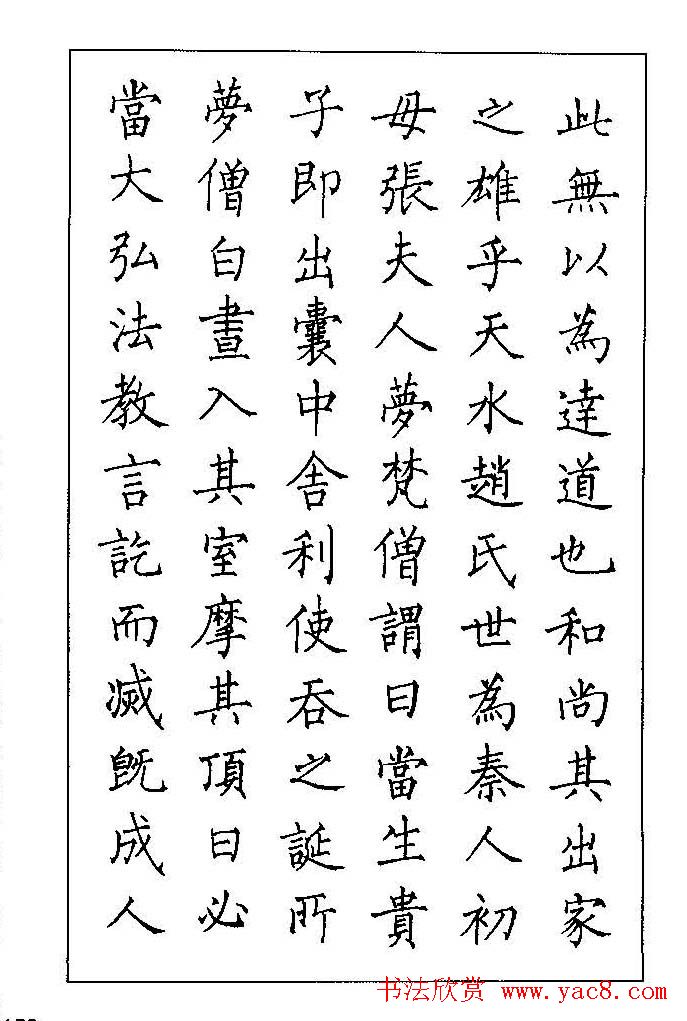 此無以為達道也和尚其出家
之雄乎天水趙氏世為秦人初
母張夫人夢梵僧謂曰當生貴
子即出囊中舍利使吞之誕所
夢僧白晝入其室摩其頂曰必
當大弘法教言訖而滅既成人
书法欣赏 www.yac8.com